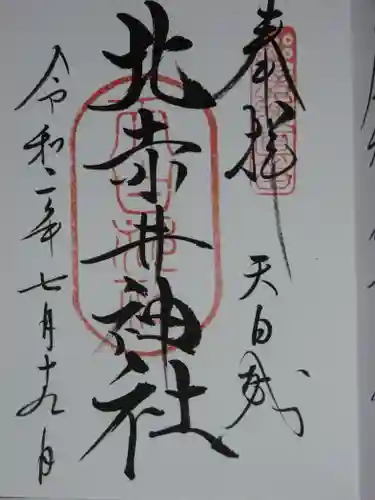 奉拝
天白
北赤井神社
令和二年七月十九日